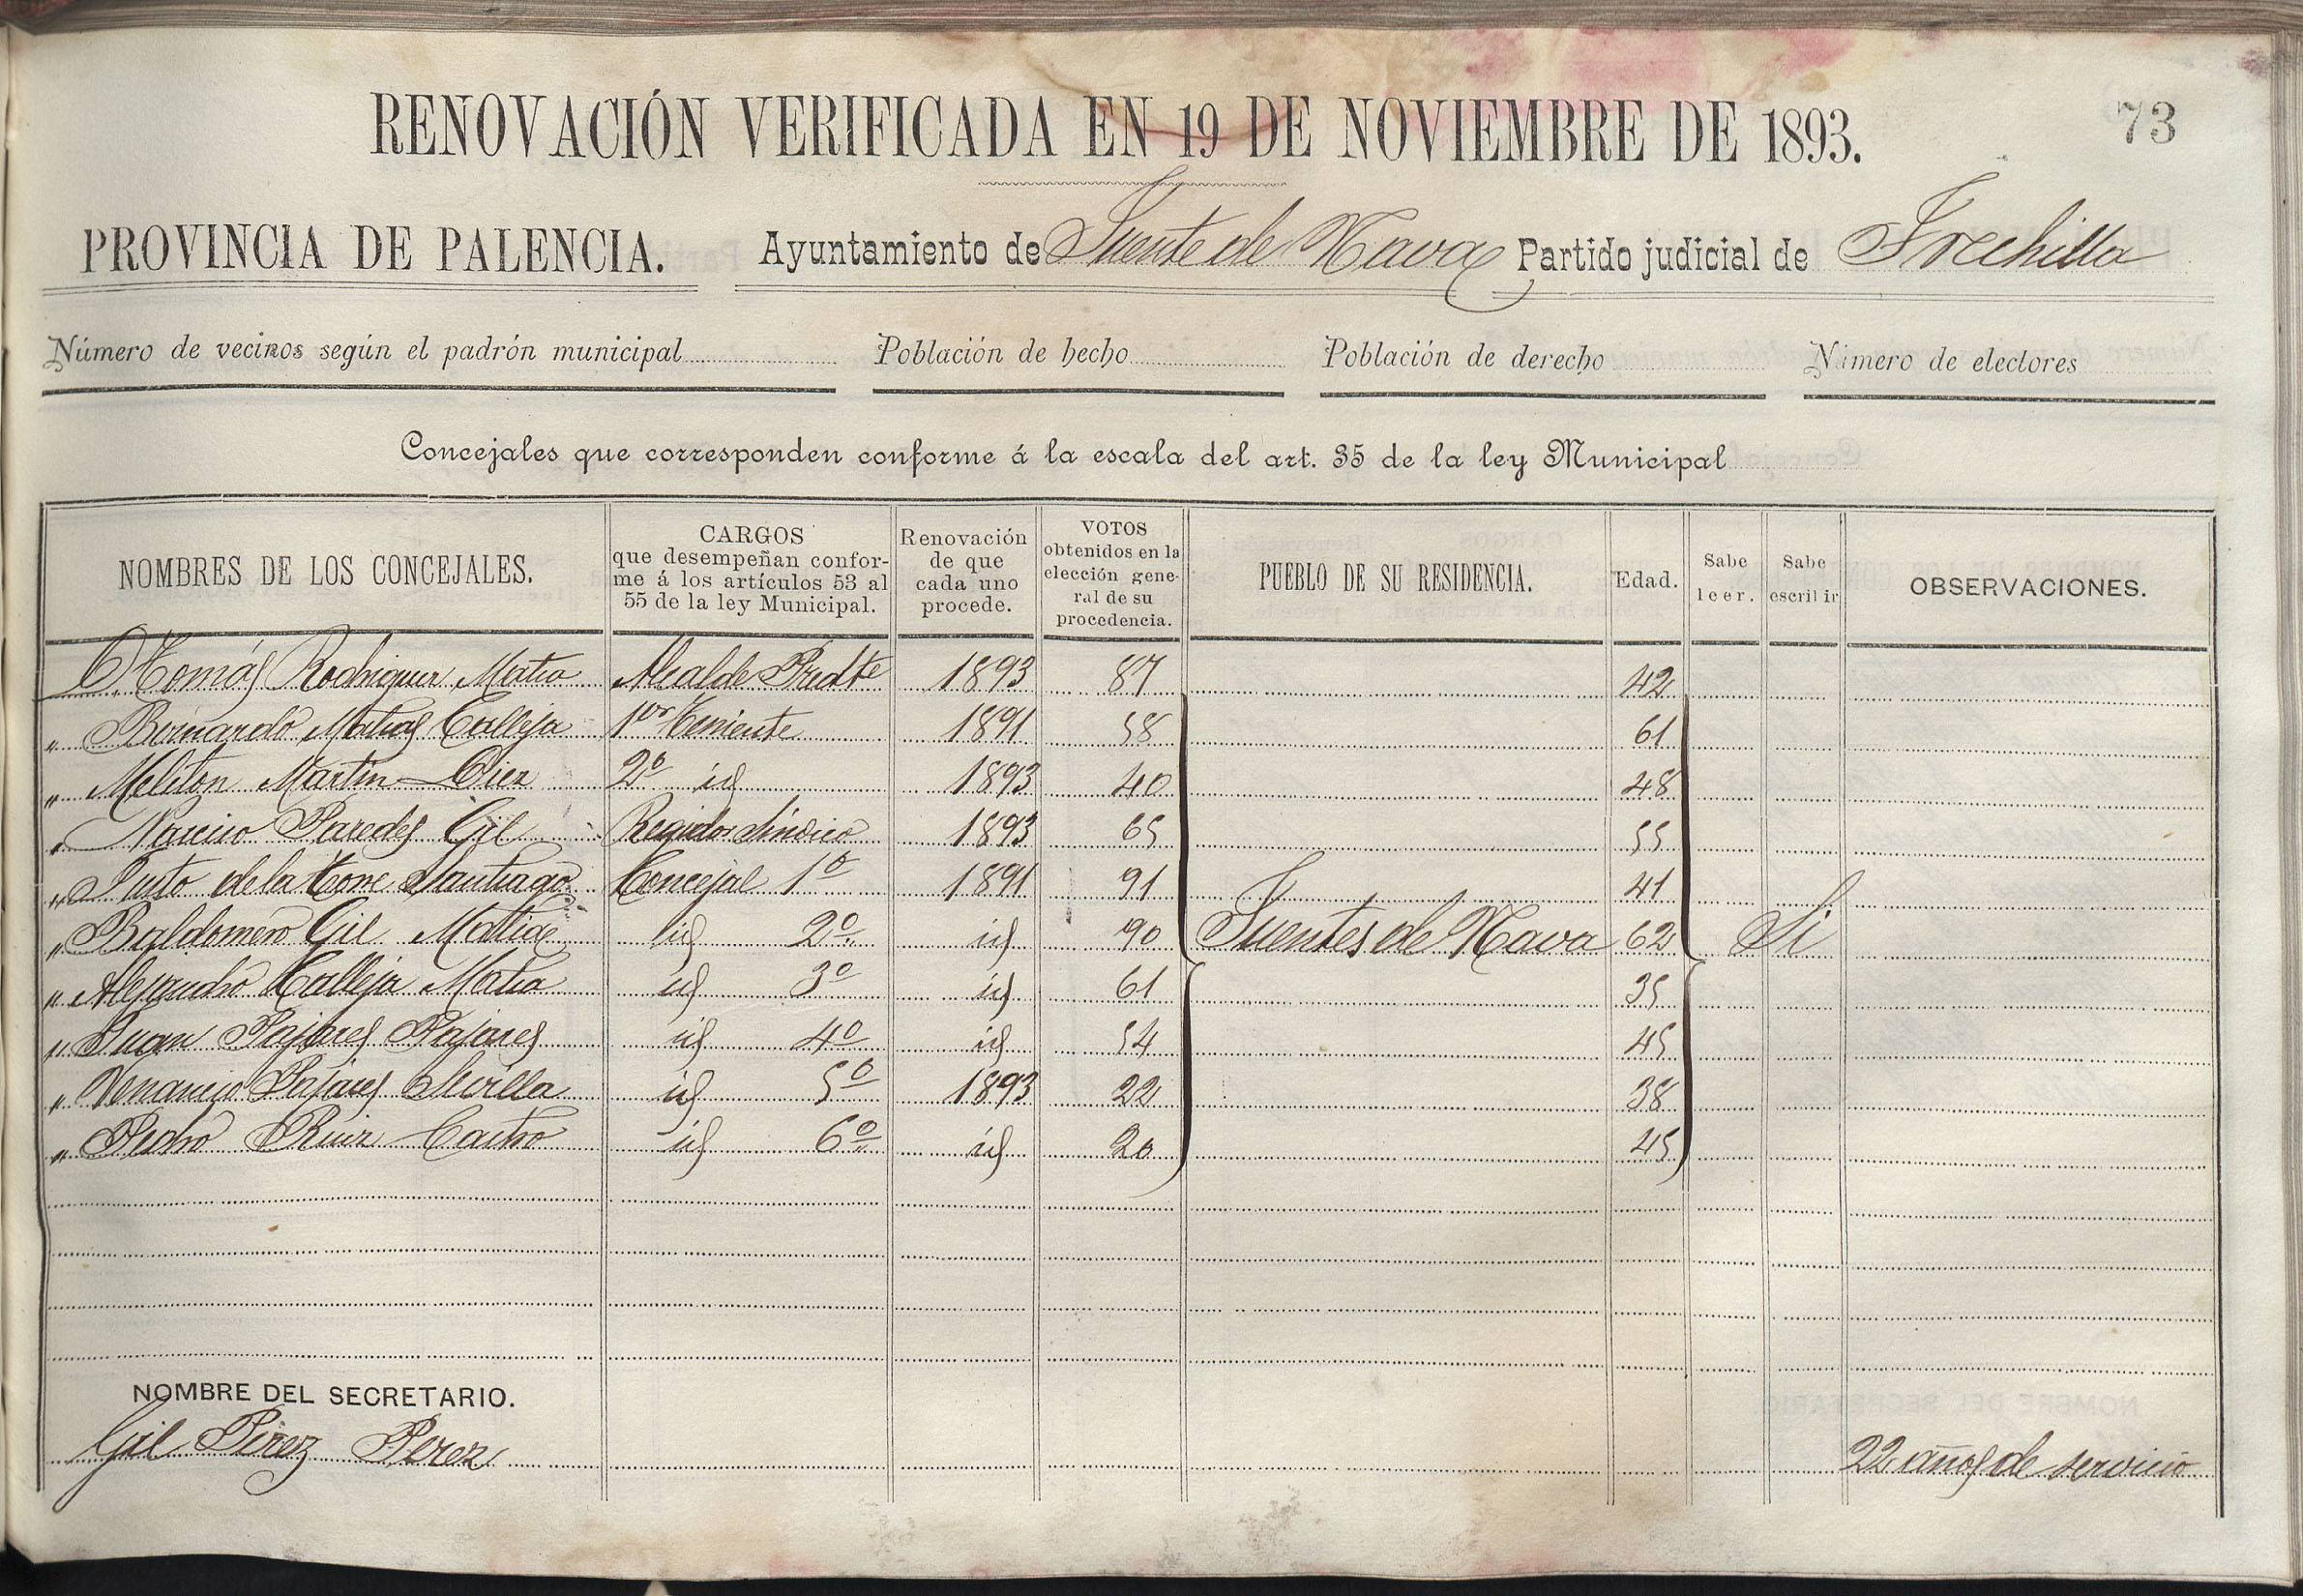 RENOVACIÓN VERIFICADA EN 19 DE NOVIEMBRE DE 1893. 73
PROVINCIA DE PALENCIA. Ayuntamiento de Fuente de Nava Partido judicial de Frechilla
Número de vecinos según el padrón municipal Población de hecho Población de derecho Número de electores
Concejales que corresponden conforme á la escala del art. 35 de la ley Municipal
NOMBRES DE LOS CONCEJALES.
CARGOS
que desempeñan confor-
me á los artículos 53 al
55 de la ley Municipal.
Renovación
de que
cada uno
procede.
VOTOS
obtenidos en la
elección gene-
ral de su
procedencia.
PUEBLO DE SU RESIDENCIA.
Edad.
Sabe
leer.
Sabe
escribir
OBSERVACIONES.
D. Tomás Rodriguez Matia Alcalde Pridte 1893 87 42
" Bernardo Matias Calleja 1er Teniente 1891 58 61
" Meliton Martin Diez 2º id 1893 40 48
" Narciso Paredes Gil Regidor Síndico 1893 65 55
" Justo de la Torre Santiago Concejal 1º 1891 91 41
" Baldomero Gil Matia id 2º id 90 Fuentes de Nava 62 Si
" Alejandro Calleja Matia id 3º id 61 35
" Juan Pajares Pajares id 4º id 54 45
" Venancio Pajares Sevilla id 5º 1893 22 38
" Pedro Ruiz Castro id 6º id 20 45
NOMBRE DEL SECRETARIO.
Gil Pérez Perez 22 años de servicio